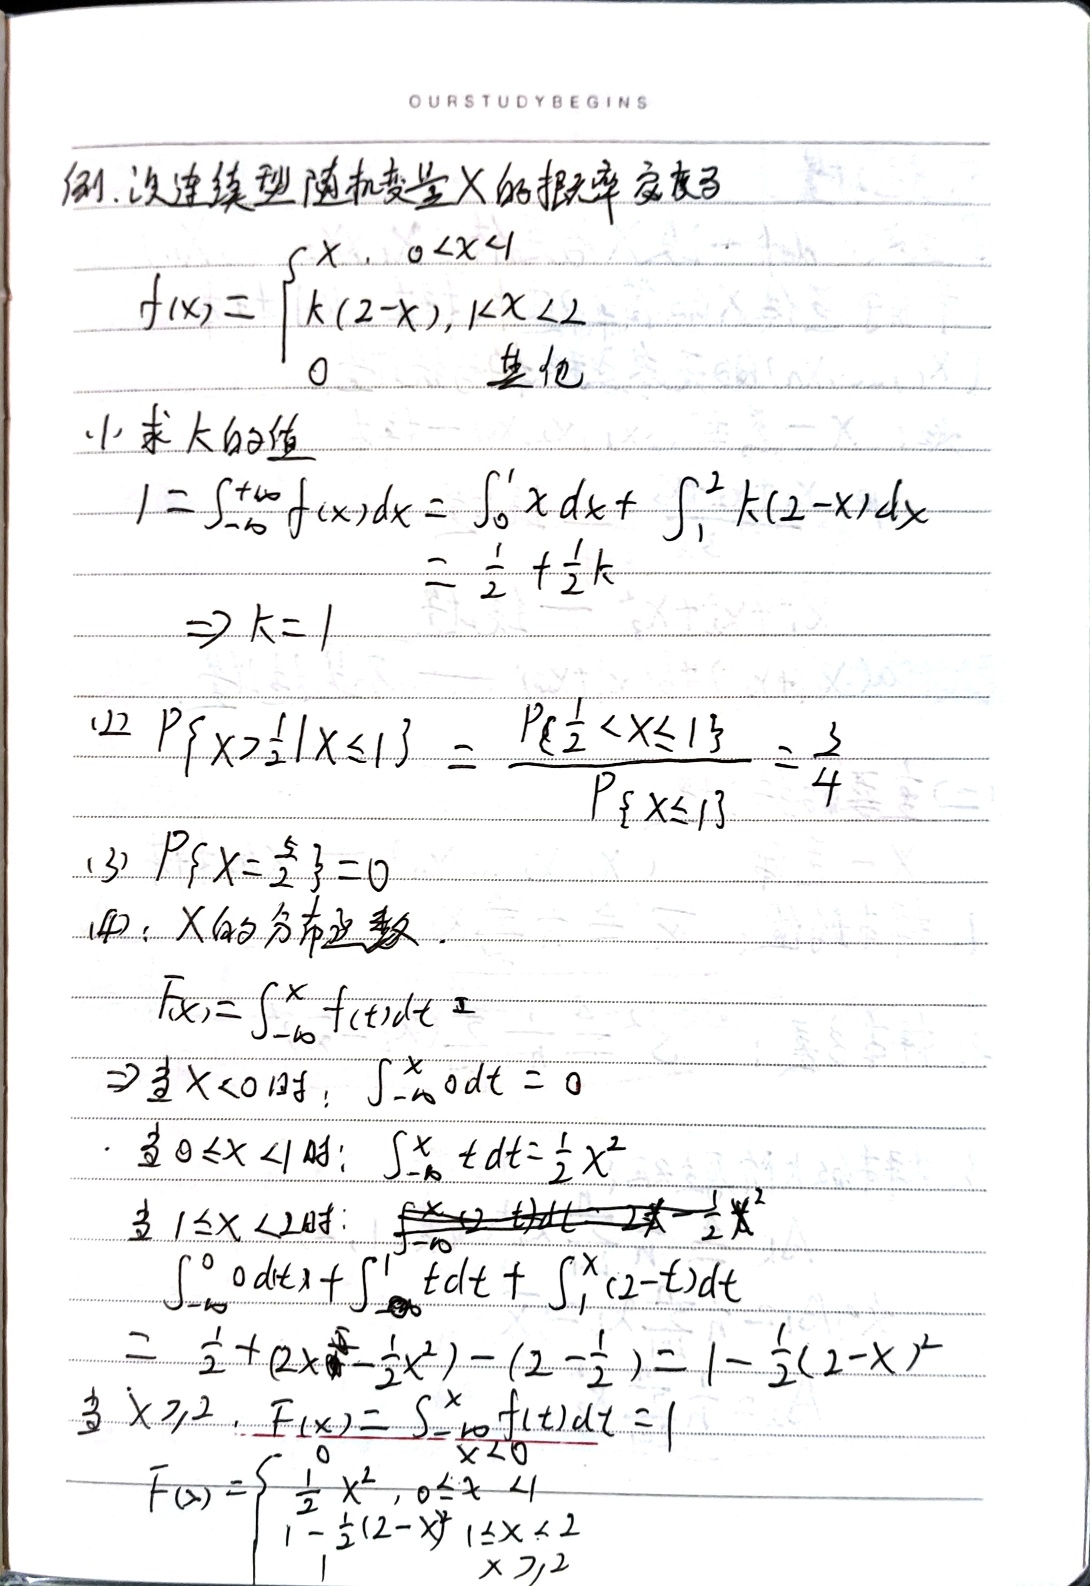 OURSTUDYBEGINS
例.设连续型随机变量X的概率密度为
f(x) = { x , 0<x<1
k(2-x), 1<x<2
0 其他
(1) 求k的值
1 = ∫_{-∞}^{+∞} f(x)dx = ∫_0^1 x dx + ∫_1^2 k(2-x)dx
= 1/2 + 1/2 k
⇒ k = 1
(2) P{X>1/2|X≤1} = P{1/2<X≤1} / P{X≤1} = 3/4
(3) P{X=5/2}=0
(4): X的分布函数.
F(x) = ∫_{-∞}^x f(t)dt
⇒ 当X<0时: ∫_{-∞}^x 0dt = 0
· 当0≤x<1时: ∫_{-∞}^x tdt = 1/2 x²
当 1≤x<2时:
∫_{-∞}^0 0dt + ∫_0^1 tdt + ∫_1^x (2-t)dt
= 1/2 + (2x - 1/2 x²) - (2 - 1/2) = 1 - 1/2 (2-x)²
当 x≥2. F(x) = ∫_{-∞}^x f(t)dt = 1
F(x) = { 0 x<0
1/2 x² , 0≤x<1
1 - 1/2 (2-x)² 1≤x<2
1 x≥2